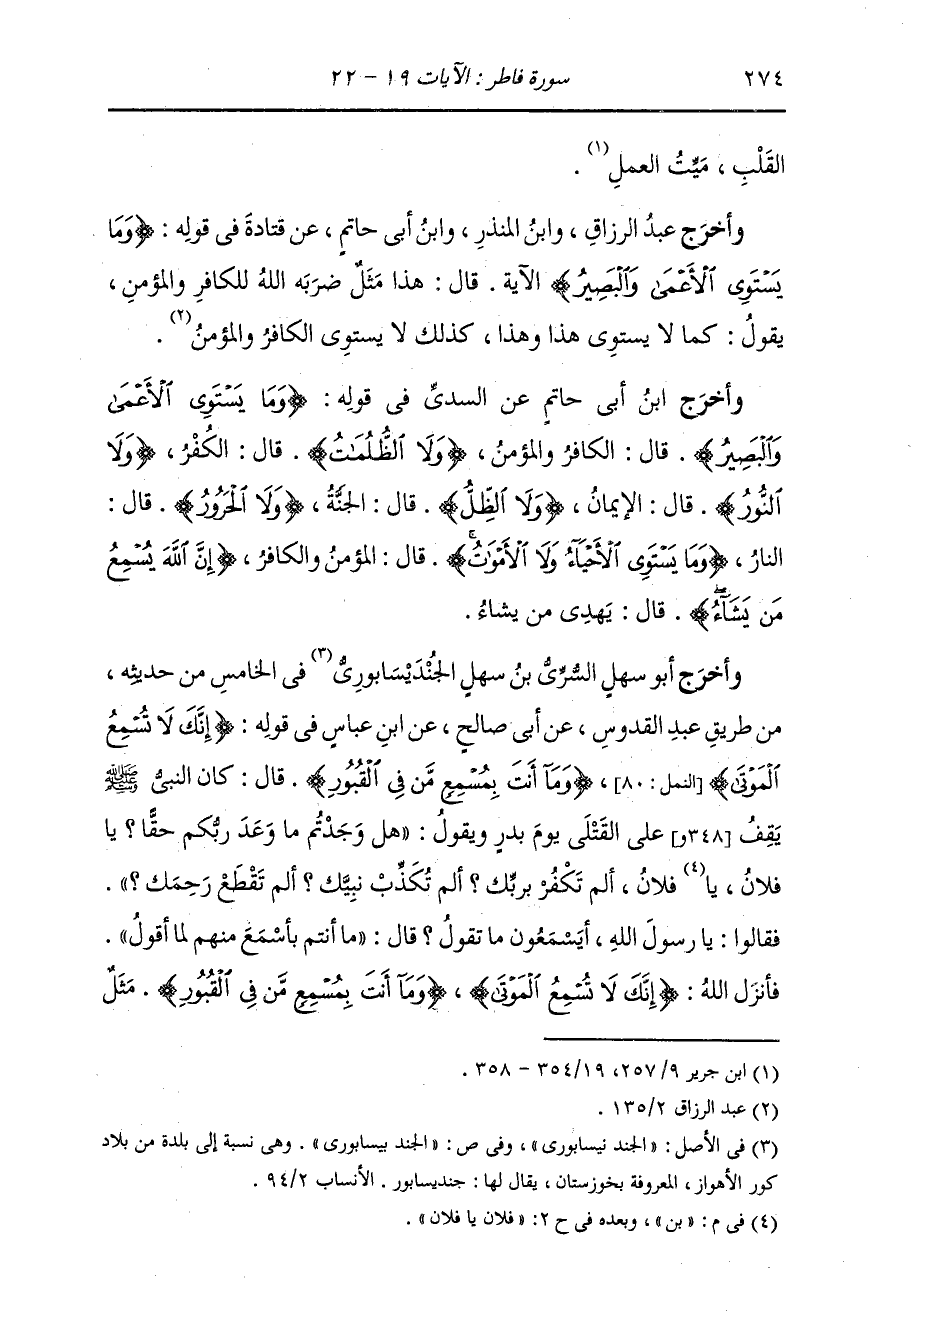 ٢٧٤ سورة فاطر : الآيات ١٩ - ٢٢
القَلْبِ ، مَيِّتُ العملِ(١) .
وأخرَج عبدُ الرزاقِ ، وابنُ المنذرِ ، وابنُ أبى حاتمٍ ، عن قتادةَ فى قولِه : ﴿وَمَا
يَسْتَوِى ٱلْأَعْمَىٰ وَٱلْبَصِيرُ﴾ الآية . قال : هذا مَثَلٌ ضرَبَه اللهُ للكافرِ والمؤمنِ ،
يقولُ : كما لا يستوِى هذا وهذا ، كذلك لا يستوِى الكافرُ والمؤمنُ(٢) .
وأخرَج ابنُ أبى حاتمٍ عن السدىِّ فى قولِه : ﴿وَمَا يَسْتَوِى ٱلْأَعْمَىٰ
وَٱلْبَصِيرُ﴾ . قال : الكافرُ والمؤمنُ ، ﴿وَلَا ٱلظُّلُمَٰتُ﴾ . قال : الكُفْرُ ، ﴿وَلَا
ٱلنُّورُ﴾ . قال : الإيمانُ ، ﴿وَلَا ٱلظِّلُّ﴾ . قال : الجنَّةُ ، ﴿وَلَا ٱلْحَرُورُ﴾ . قال :
النارُ ، ﴿وَمَا يَسْتَوِى ٱلْأَحْيَآءُ وَلَا ٱلْأَمْوَٰتُۚ﴾ . قال : المؤمنُ والكافرُ ، ﴿إِنَّ ٱللَّهَ يُسْمِعُ
مَن يَشَآءُۖ﴾ . قال : يَهدِى من يشاءُ .
وأخرَج أبو سهلٍ السُّرِّىُّ بنُ سهلٍ الجُنْدَيْسَابورِىُّ(٣) فى الخامسِ من حديثِه ،
من طريقِ عبدِ القدوسِ ، عن أبى صالحٍ ، عن ابنِ عباسٍ فى قولِه : ﴿إِنَّكَ لَا تُسْمِعُ
ٱلْمَوْتَىٰ﴾ [النمل : ٨٠] ، ﴿وَمَآ أَنتَ بِمُسْمِعٍ مَّن فِى ٱلْقُبُورِ﴾ . قال : كان النبىُّ ﷺ
يَقِفُ [٣٤٨و] على القَتْلَى يومَ بدرٍ ويقولُ : «هل وَجَدْتُم ما وَعَدَ ربُّكم حقًّا ؟ يا
فلانُ ، يا(٤) فلانُ ، ألم تَكْفُرْ بربِّك ؟ ألم تُكَذِّبْ نبيَّك ؟ ألم تَقْطَعْ رَحِمَك ؟» .
فقالوا : يا رسولَ اللهِ ، أيَسْمَعُون ما تقولُ ؟ قال : «ما أنتم بأسْمَعَ منهم لما أقولُ» .
فأنزَل اللهُ : ﴿إِنَّكَ لَا تُسْمِعُ ٱلْمَوْتَىٰ﴾ ، ﴿وَمَآ أَنتَ بِمُسْمِعٍ مَّن فِى ٱلْقُبُورِ﴾ . مَثَلٌ
(١) ابن جرير ٩/ ٢٥٧، ١٩/ ٣٥٤ - ٣٥٨ .
(٢) عبد الرزاق ٢/ ١٣٥ .
(٣) فى الأصل : «الجند نيسابورى» ، وفى ص : «الجند بيسابورى» . وهى نسبة إلى بلدة من بلاد
كور الأهواز ، المعروفة بخوزستان ، يقال لها : جنديسابور . الأنساب ٢/ ٩٤ .
(٤) فى م : «بن» ، وبعده فى ح ٢: «فلان يا فلان» .